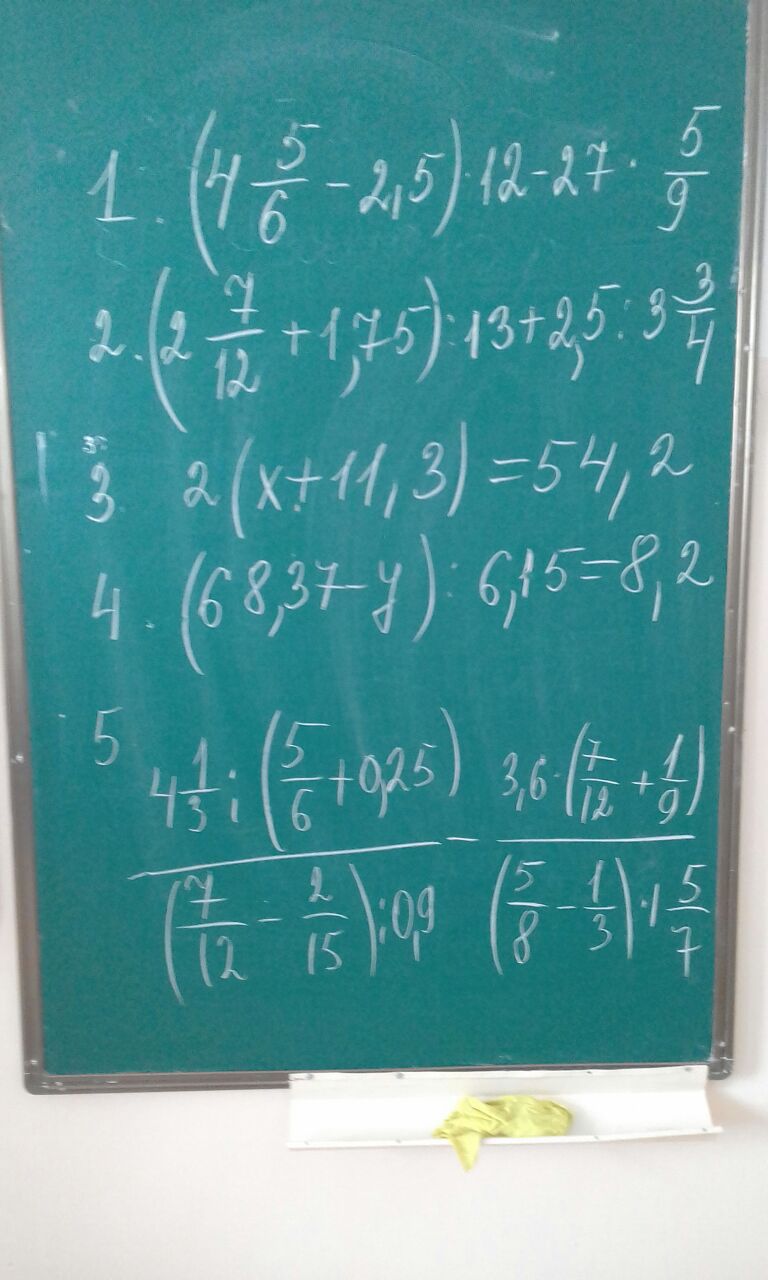 1. (4 5/6 - 2,5) · 12 - 27 · 5/9
2. (2 7/12 + 1,75) : 13 + 2,5 : 3 3/4
3 2(x + 11,3) = 54,2
4. (68,37 - y) : 6,15 = 8,2
5 4 1/3 : (5/6 + 0,25) / (7/12 - 2/15) : 0,9 - 3,6 · (7/12 + 1/9) / (5/8 - 1/3) · 1 5/7